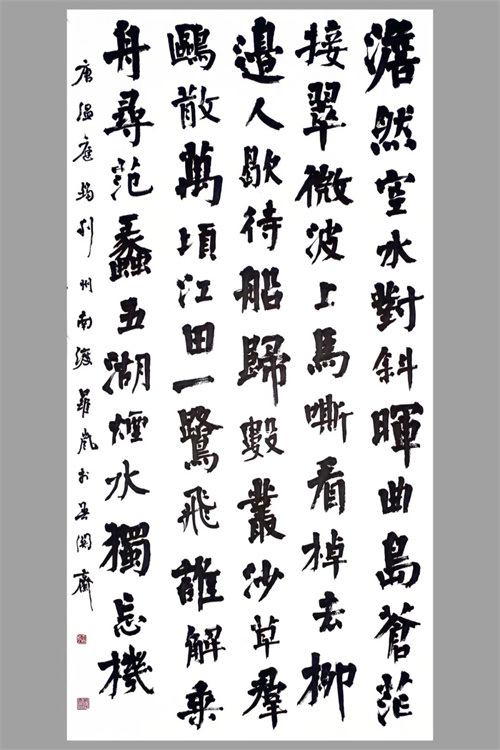 澹然空水對斜暉曲島蒼茫
接翠微波上馬嘶看棹去柳
邊人歇待船歸數叢沙草羣
鷗散萬頃江田一鷺飛誰解乘
舟尋范蠡五湖煙水獨忘機
唐温庭筠利州南渡